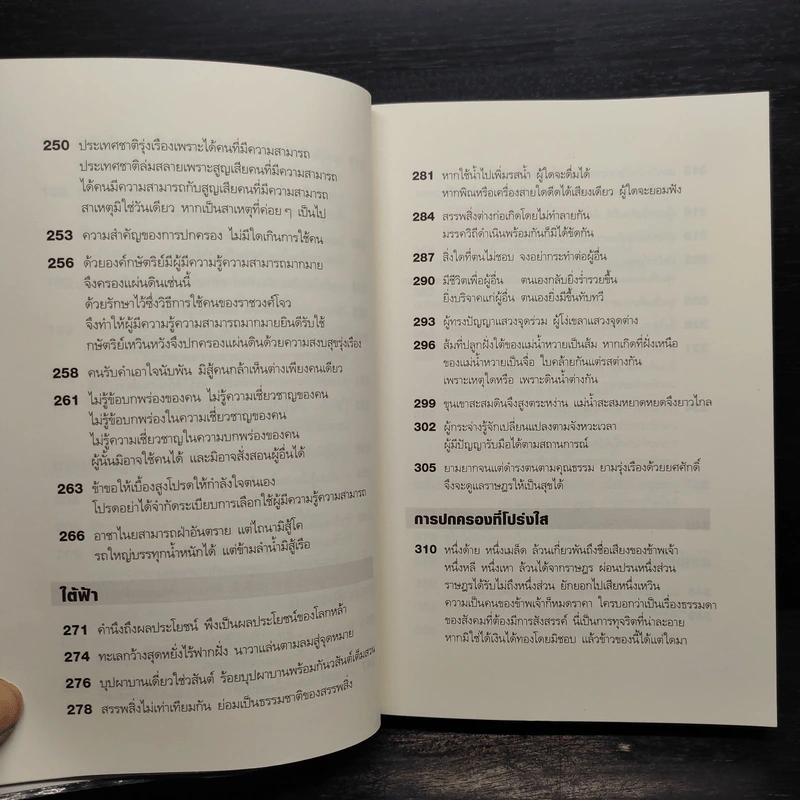 250 ประเทศชาติรุ่งเรืองเพราะได้คนที่มีความสามารถ
ประเทศชาติล่มสลายเพราะสูญเสียคนที่มีความสามารถ
ได้คนมีความสามารถกับสูญเสียคนที่มีความสามารถ
สาเหตุมิใช่วันเดียว หากเป็นสาเหตุที่ค่อยๆ เป็นไป
253 ความสำคัญของการปกครอง ไม่มีใดเกินการใช้คน
256 ด้วยองค์กษัตริย์มีผู้มีความรู้ความสามารถมากมาย
จึงครองแผ่นดินเช่นนี้
ด้วยรักษาไว้ซึ่งวิธีการใช้คนของราชวงศ์โจว
จึงทำให้ผู้มีความรู้ความสามารถมากมายยินดีรับใช้
กษัตริย์เหวินหวังจึงปกครองแผ่นดินด้วยความสงบสุขรุ่งเรือง
258 คนรับคำเอาใจนับพัน มิสู้คนกล้าเห็นต่างเพียงคนเดียว
261 ไม่รู้ข้อบกพร่องของคน ไม่รู้ความเชี่ยวชาญของคน
ไม่รู้ข้อบกพร่องในความเชี่ยวชาญของคน
ไม่รู้ความเชี่ยวชาญในความบกพร่องของคน
ผู้นั้นมิอาจใช้คนได้ และมิอาจสั่งสอนผู้อื่นได้
263 ข้าขอให้เบื้องสูงโปรดให้กำลังใจตนเอง
โปรดอย่าได้จำกัดระเบียบการเลือกใช้ผู้มีความรู้ความสามารถ
266 อาชาไนยสามารถฝ่าอันตราย แต่ไถนามิสู้โค
รถใหญ่บรรทุกน้ำหนักได้ แต่ข้ามลำน้ำมิสู้เรือ
ใต้ฟ้า
271 คำนึงถึงผลประโยชน์ พึงเป็นผลประโยชน์ของโลกหล้า
274 ทะเลกว้างสุดหยั่งไร้ฟากฝั่ง นาวาแล่นตามลมสู่จุดหมาย
276 บุปผาบานเดี่ยวใช่วสันต์ ร้อยบุปผาบานพร้อมกันวสันต์เต็มสวน
278 สรรพสิ่งไม่เท่าเทียมกัน ย่อมเป็นธรรมชาติของสรรพสิ่ง
281 หากใช้น้ำไปเพิ่มรสน้ำ ผู้ใดจะดื่มได้
หากพิณหรือเครื่องสายใดดีดได้เสียงเดียว ผู้ใดจะยอมฟัง
284 สรรพสิ่งต่างก่อเกิดโดยไม่ทำลายกัน
มรรควิถีดำเนินพร้อมกันก็มิได้ขัดกัน
287 สิ่งใดที่ตนไม่ชอบ จงอย่ากระทำต่อผู้อื่น
290 มีชีวิตเพื่อผู้อื่น ตนเองกลับยิ่งร่ำรวยขึ้น
ยิ่งบริจาคแก่ผู้อื่น ตนเองยิ่งมีขึ้นทับทวี
293 ผู้ทรงปัญญาแสวงจุดร่วม ผู้โง่เขลาแสวงจุดต่าง
296 ส้มที่ปลูกฝั่งใต้ของแม่น้ำหวายเป็นส้ม หากเกิดที่ฝั่งเหนือ
ของแม่น้ำหวายเป็นจื่อ ใบคล้ายกันแต่รสต่างกัน
เพราะเหตุใดหรือ เพราะดินน้ำต่างกัน
299 ขุนเขาสะสมดินจึงสูงตระหง่าน แม่น้ำสะสมหยาดหยดจึงยาวไกล
302 ผู้กระจ่างรู้จักเปลี่ยนแปลงตามจังหวะเวลา
ผู้มีปัญญารับมือได้ตามสถานการณ์
305 ยามยากจนแต่ดำรงตนตามคุณธรรม ยามรุ่งเรืองด้วยยศศักดิ์
จึงจะดูแลราษฎรให้เป็นสุขได้
การปกครองที่โปร่งใส
310 หนึ่งด้าย หนึ่งเมล็ด ล้วนเกี่ยวพันถึงชื่อเสียงของข้าพเจ้า
หนึ่งหลี หนึ่งเหา ล้วนได้จากราษฎร ผ่อนปรนหนึ่งส่วน
ราษฎรได้รับไม่ถึงหนึ่งส่วน ยักยอกไปเสียหนึ่งเหวิน
ความเป็นคนของข้าพเจ้าก็หมดราคา ใครบอกว่าเป็นเรื่องธรรมดา
ของสังคมที่ต้องมีการสังสรรค์ นี่เป็นการทุจริตที่น่าละอาย
หากมิใช่ได้เงินได้ทองโดยมิชอบ แล้วข้าวของนี้ได้แต่ใดมา